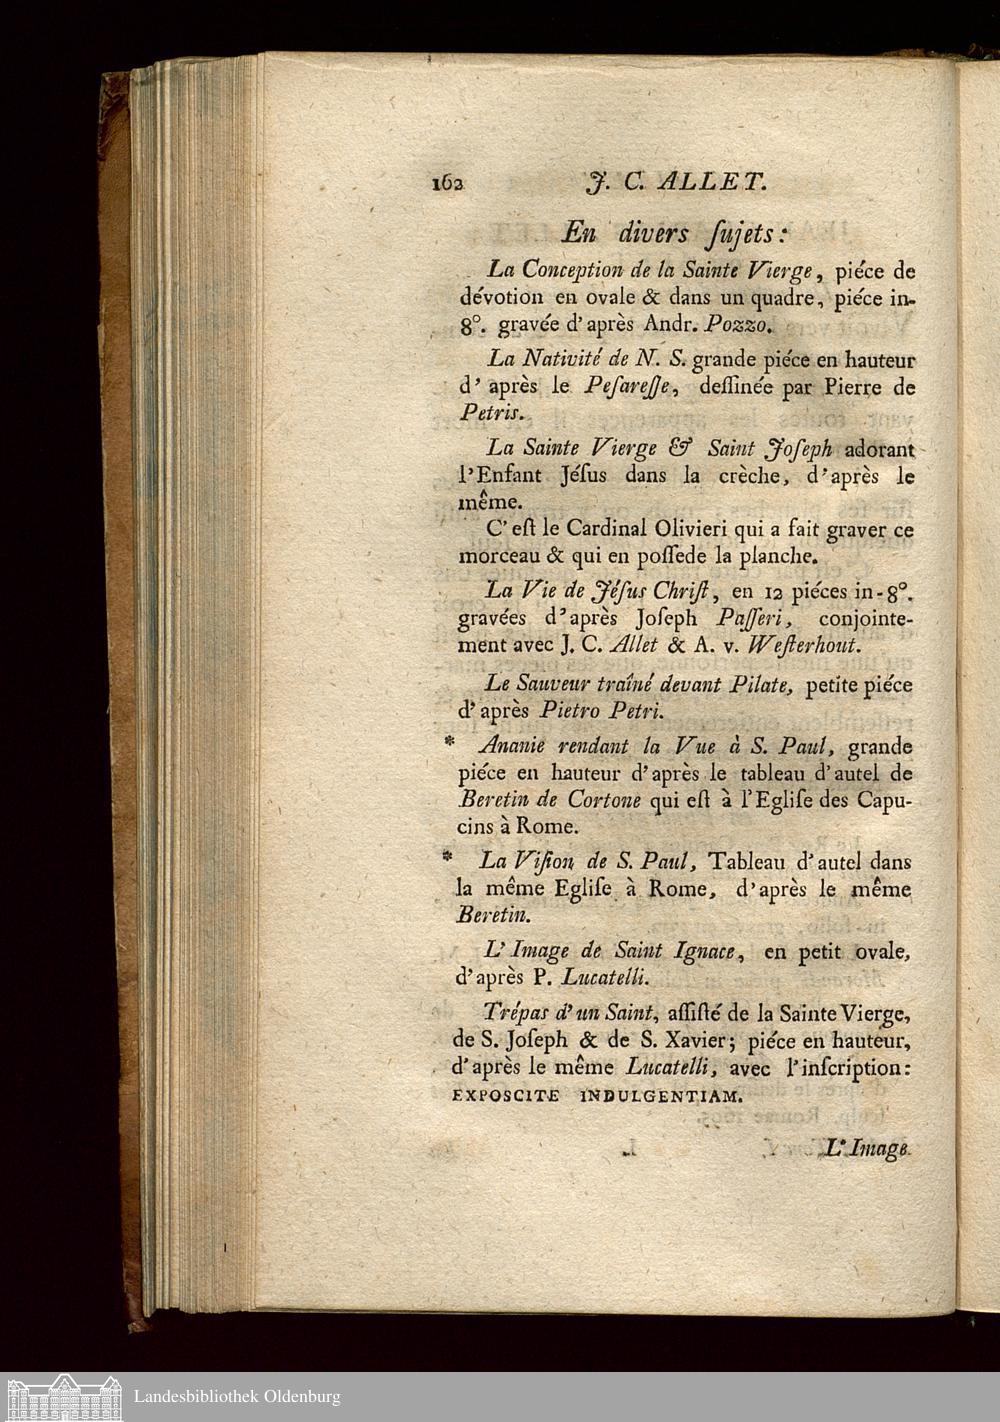 162 J. C. ALLET.
En divers ſujets:
La Conception de la Sainte Vierge, piéce de
dévotion en ovale & dans un quadre, piéce in-
8°. gravée d'après Andr. Pozzo.
La Nativité de N. S. grande piéce en hauteur
d'après le Peſareſſe, deſſinée par Pierre de
Petris.
La Sainte Vierge & Saint Joſeph adorant
l'Enfant Jéſus dans la crèche, d'après le
même.
C'eſt le Cardinal Olivieri qui a fait graver ce
morceau & qui en poſſede la planche.
La Vie de Jéſus Chriſt, en 12 piéces in-8°.
gravées d'après Joſeph Paſſeri, conjointe-
ment avec J. C. Allet & A. v. Weſterhout.
Le Sauveur traîné devant Pilate, petite piéce
d'après Pietro Petri.
* Ananie rendant la Vue à S. Paul, grande
piéce en hauteur d'après le tableau d'autel de
Beretin de Cortone qui eſt à l'Egliſe des Capu-
cins à Rome.
* La Viſion de S. Paul, Tableau d'autel dans
la même Egliſe à Rome, d'après le même
Beretin.
L'Image de Saint Ignace, en petit ovale,
d'après P. Lucatelli.
Trépas d'un Saint, aſſiſté de la Sainte Vierge,
de S. Joſeph & de S. Xavier; piéce en hauteur,
d'après le même Lucatelli, avec l'inſcription:
EXPOSCITE INDULGENTIAM.
L'Image
Landesbibliothek Oldenburg